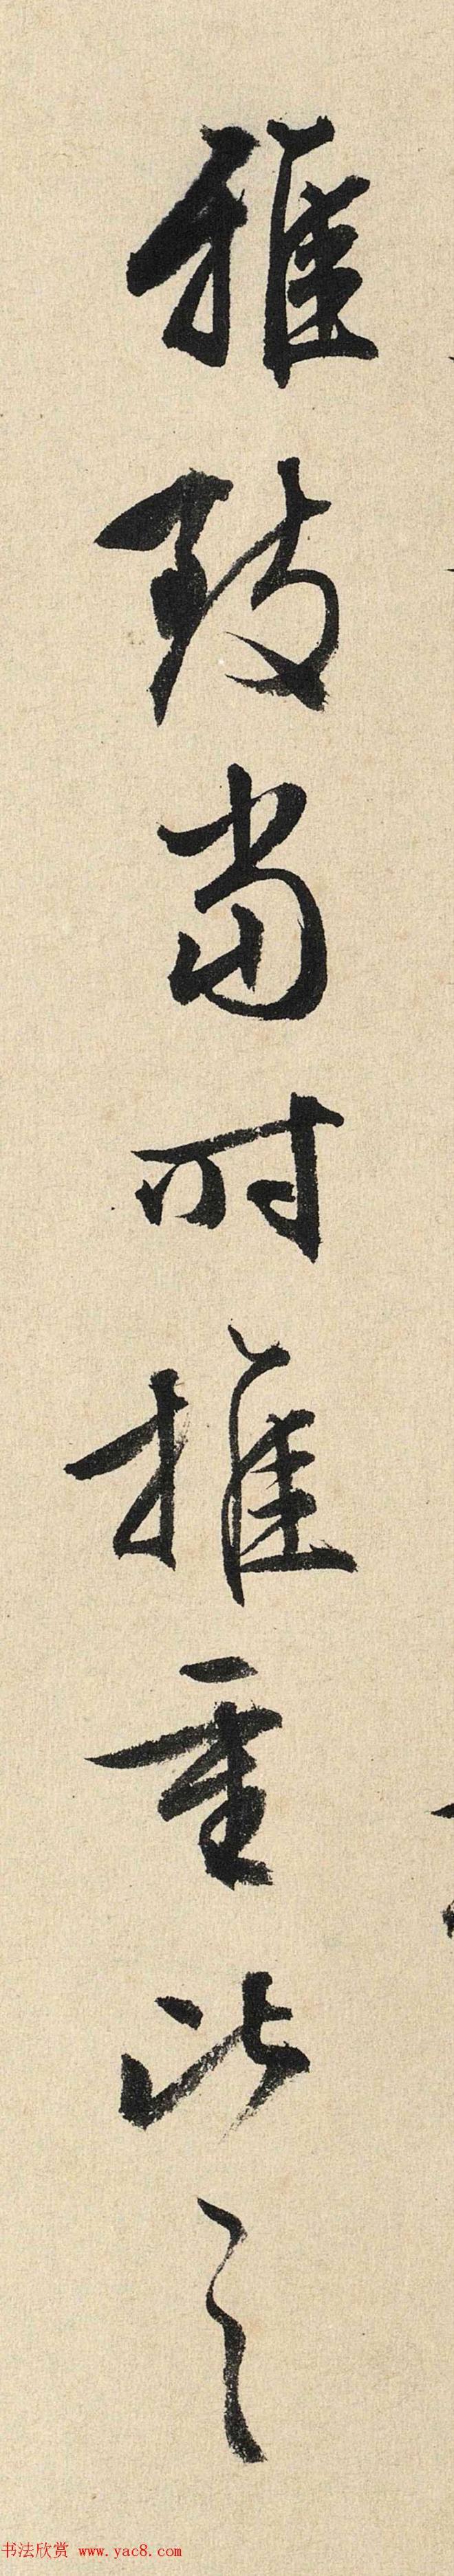 雅致当时推重比之
书法欣赏 www.yac8.com